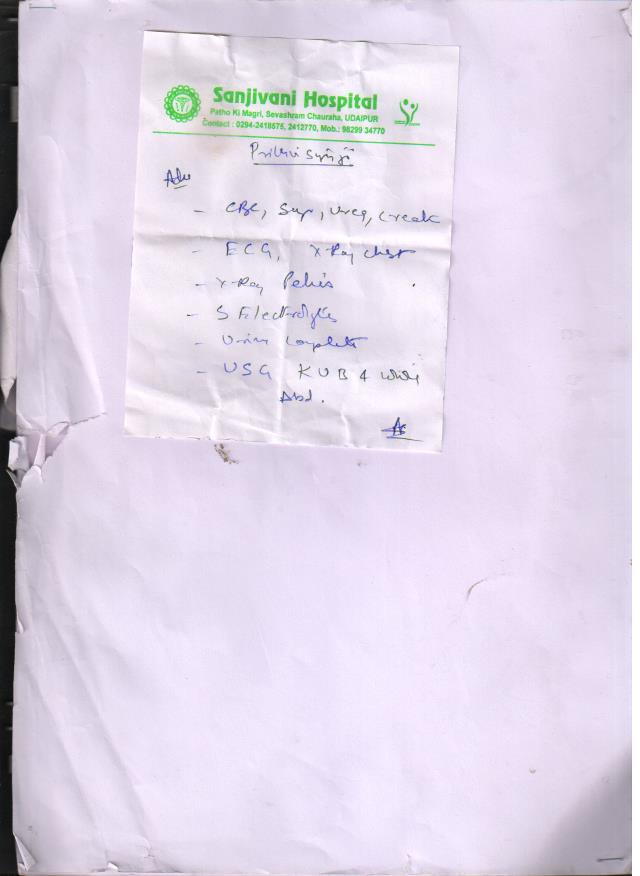 Sanjivani Hospital
Patho Ki Magri, Sevashram Chauraha, UDAIPUR
Contact : 0294-2418575, 2412770, Mob.: 98299 34770
Adv
- CBC, Sugr, Urea, Creat
- ECG, X-Ray Chest
- X-Ray Pelvis
- S Electrolytes
- Urine Complete
- USG KUB & whole
Abd.